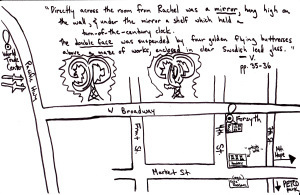 "Directly across the room from Rachel was a mirror, hung high on
the wall, & under the mirror a shelf which held a
turn-of-the-century clock.
The double face was suspended by four golden flying buttresses
above a maze of works, enclosed in clear Swedish lead glass."
— V.
pp. 35-36
Trade
Center
W Broadway
Forsyth
Front St
St.
Market St.
Hope
PETRO